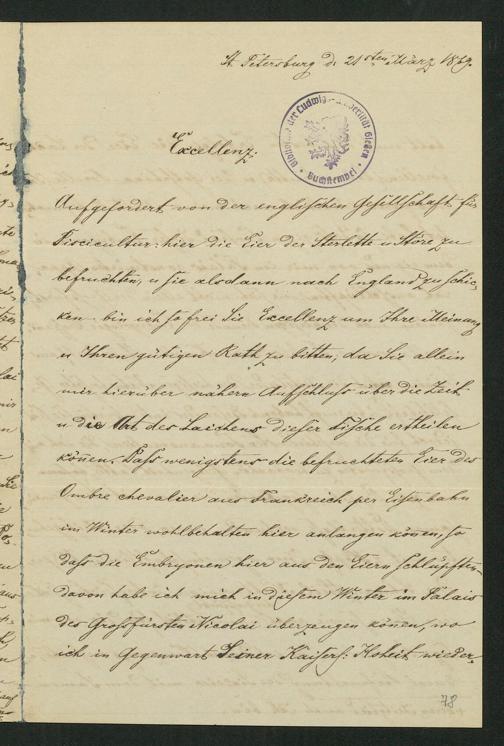 St. Petersburg d. 21sten März 1869.
Bibliothek der Ludwigs-Universität Giessen
Buchstempel
Excellenz.
Aufgefordert von der englischen Gesellschaft für
Piscicultur, hier die Eier der Sterlette u Störe zu
befruchten, u sie alsdann nach England zu schic,
ken, bin ich so frei Sie Excellenz um Ihre Meinung
u Ihren gütigen Rath zu bitten, da Sie allein
mir hierüber nähern Aufschluss über die Zeit
u die Art des Laichens dieser Fische ertheilen
können. Dass wenigstens die befruchteten Eier des
Ombre chevalier aus Frankreich per Eisenbahn
im Winter wohlbehalten hier anlangen können, so
dass die Embryonen hier aus den Eiern schlüpften,
davon habe ich mich in diesem Winter im Palais
des Grossfürsten Nicolai überzeugen können, wo
ich in Gegenwart Seiner Kaiserl: Hoheit wieder,
78